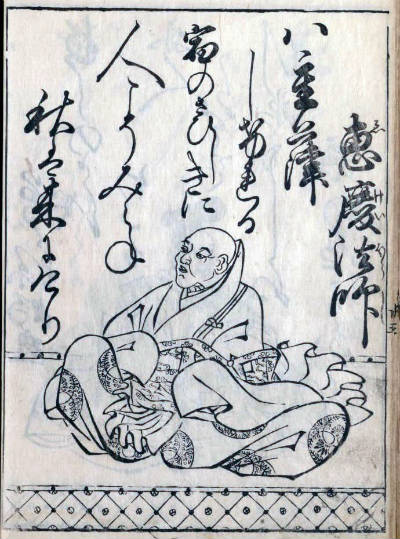 恵慶法師
ゑぎやうほうし
八重葎
しげれる
宿のさびしきに
人こそみえね
秋は来にけり